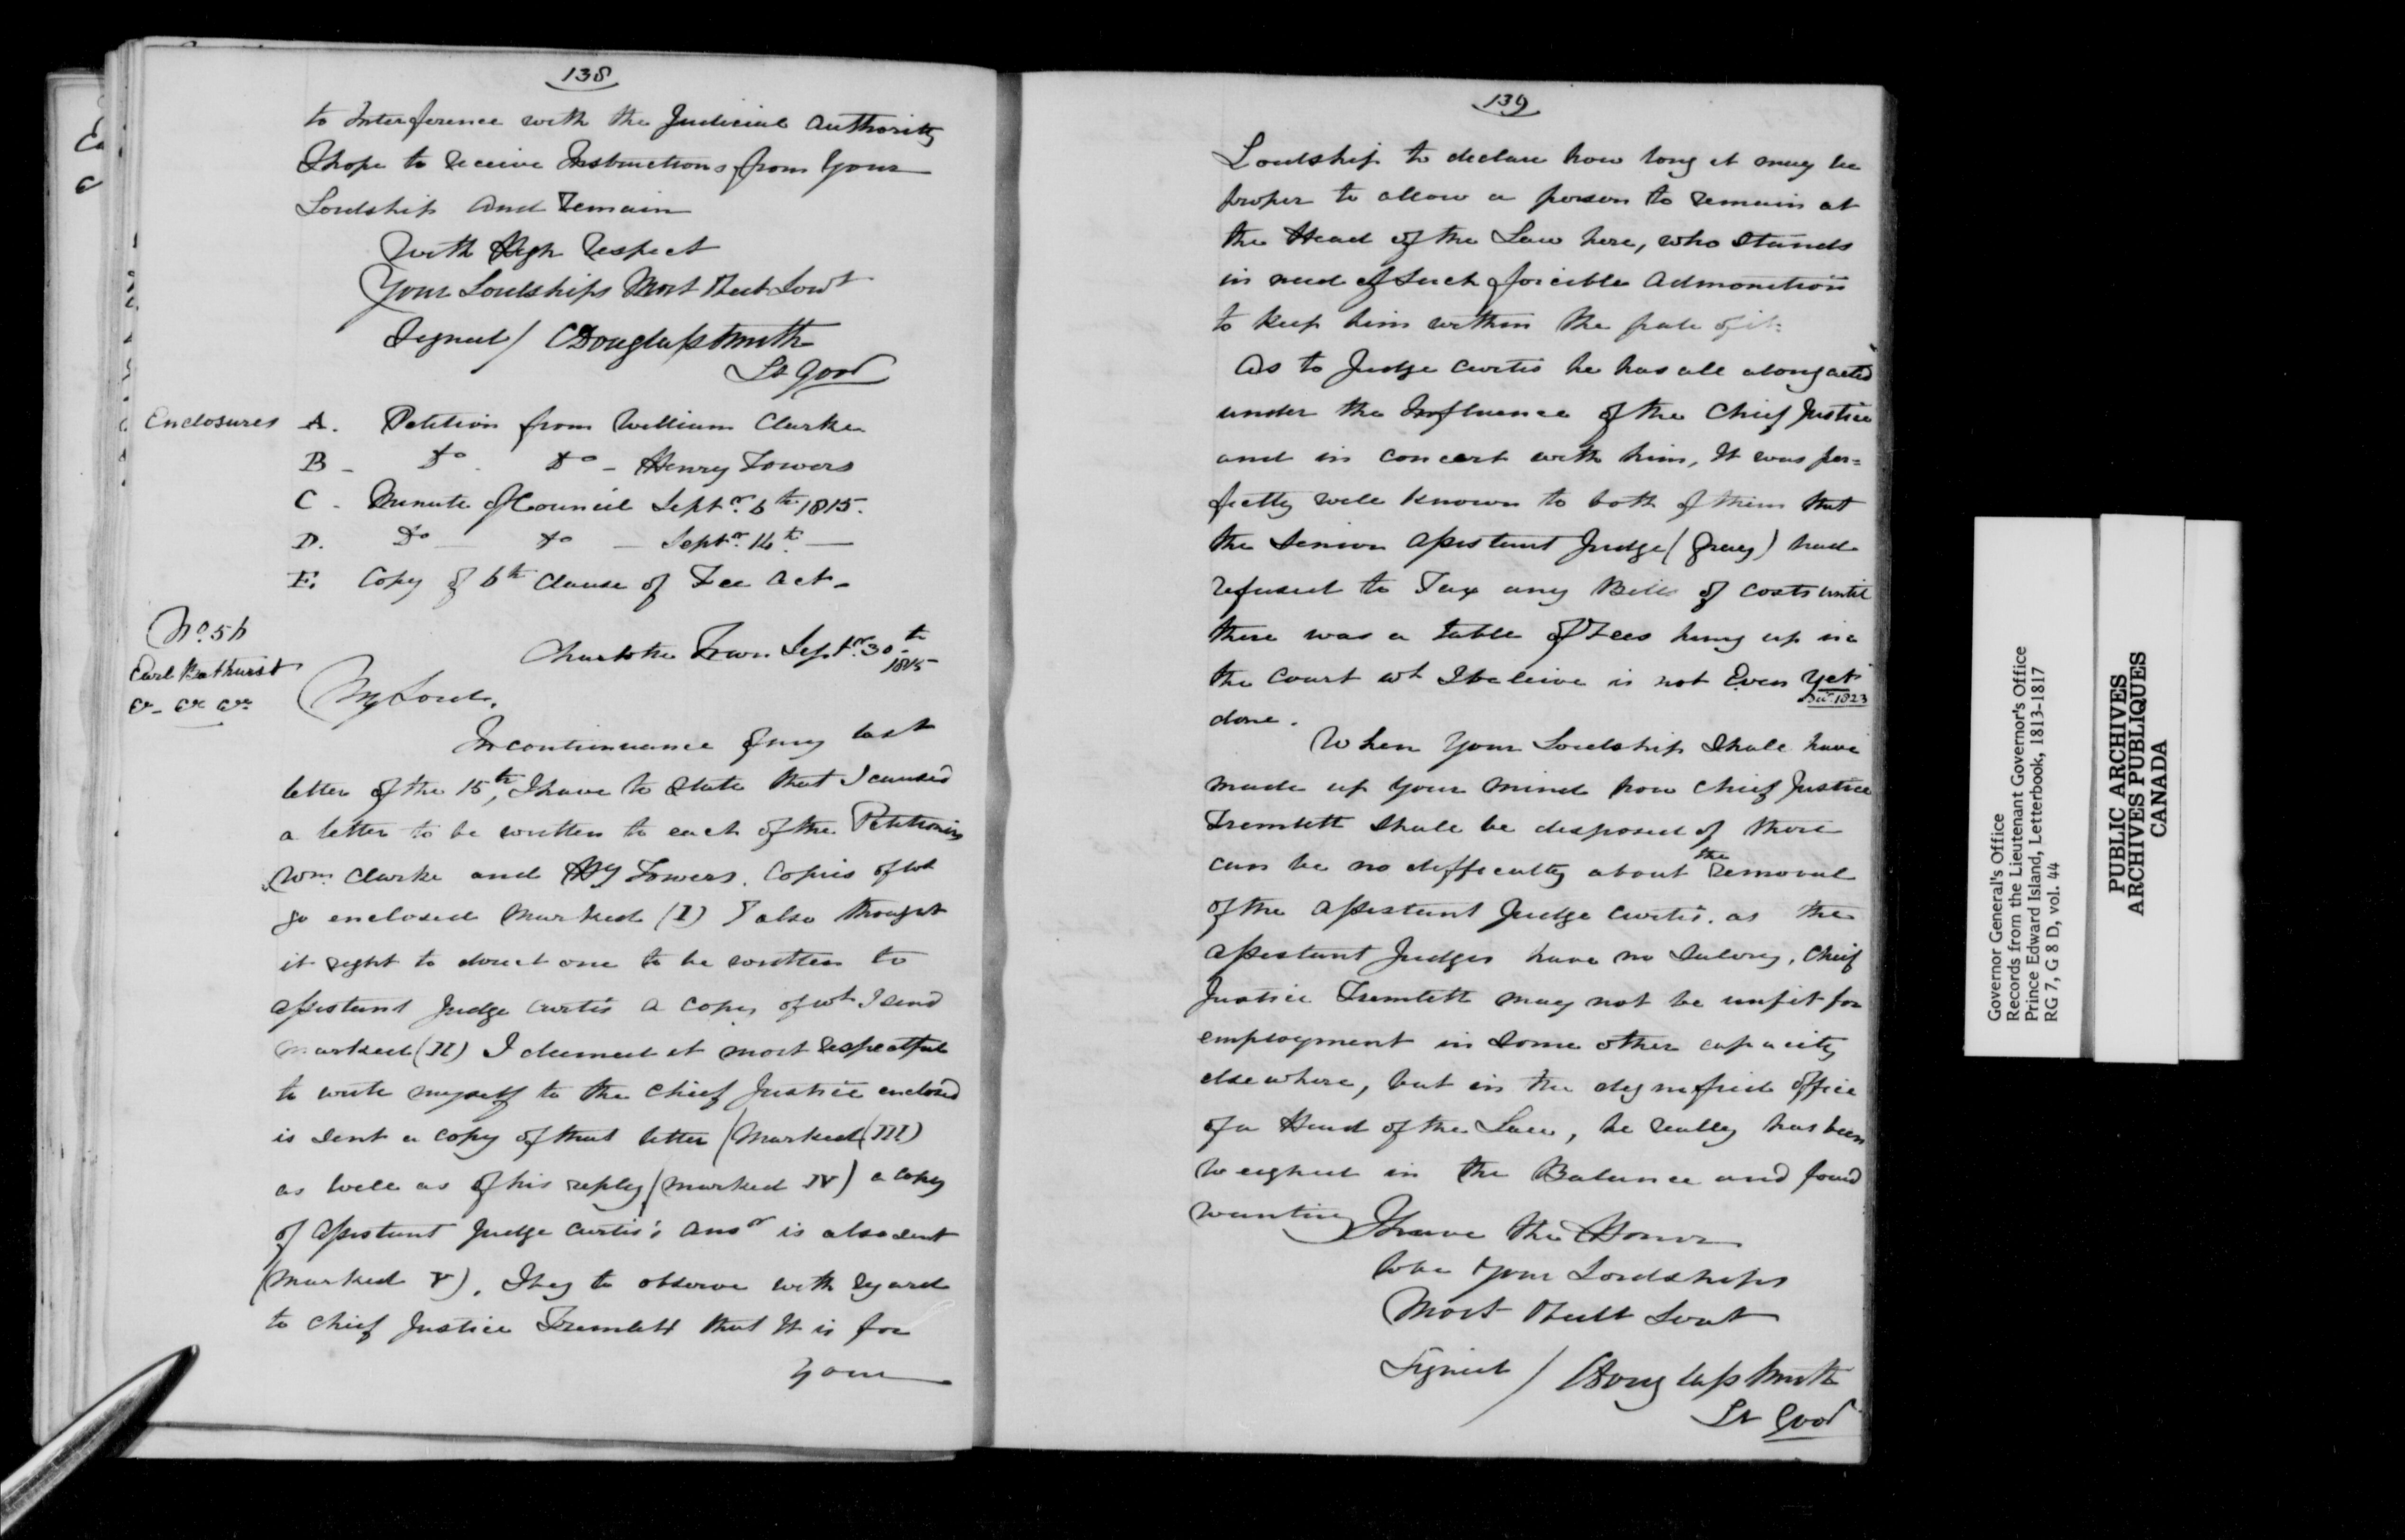 138
to Interference with the Judicial Authority
I hope to receive Instructions from Your
Lordship and remain
With High respect
Your Lordships Most Obedt Servt
Signed / CDouglass Smith
Lt Govr
Enclosures A. Petition from William Clarke
B - Do. Do - Henry Towers
C - Minute of Council Septr. 6th 1815.
D. Do - Do - Septr. 14th. -
E. Copy of 6th Clause of Fee Act -
No. 56
Earl Bathurst
&- &c &c
Charlotte Town Septr. 30th
1815
My Lord,
In continuance of my last
letter of the 15th, I have to State that I caused
a letter to be written to each of the Petitioners
Wm. Clarke and Hy Towers. Copies of wh
go enclosed Marked (I) I also thought
it right to direct one to be written to
Assistant Judge Curtis a copy of wh I send
marked (II) I deemed it most respectful
to write myself to the Chief Justice enclosed
is sent a copy of that letter (Marked (III)
as well as of his reply (marked IV) a copy
of Assistant Judge Curtis's Ansr is also sent
(Marked V). I beg to observe with regard
to Chief Justice Tremlett that It is for
Your
139
Lordship to declare how long it may be
proper to allow a person to remain at
the Head of the Law here, who Stands
in need of Such forcible Admonition
to keep him within the pale of it.
As to Judge Curtis he has all along acted
under the Influence of the Chief Justice
and in concert with him, It was per=
fectly well known to both of them that
the Senior Assistant Judge (Gray) had
refused to Tax any Bills of Costs until
there was a table of Fees hung up in
the Court wh I beleive is not Even Yet
Decr. 1823
done.
When Your Lordship Shall have
made up Your mind how Chief Justice
Tremlett Shall be disposed of there
can be no difficulty about the removal
of the Assistant Judge Curtis. as the
Assistant Judges have no Salary. Chief
Justice Tremlett may not be unfit for
employment in Some other capacity
elsewhere, but in the dignified office
of a Head of the Law, he really has been
Weighed in the Balance and found
wanting I have the Honor
to be Your Lordships
Most Obedt Servt
Signed / CDouglass Smith
Lt Govr
Governor General's Office
Records from the Lieutenant Governor's Office
Prince Edward Island, Letterbook, 1813-1817
RG 7, G 8 D, vol. 44
PUBLIC ARCHIVES
ARCHIVES PUBLIQUES
CANADA